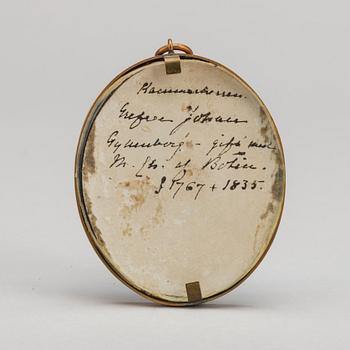 Kammarherren.
Grefve Johan
Gyllenborg - gift med
at Botin.
1767 + 1835.